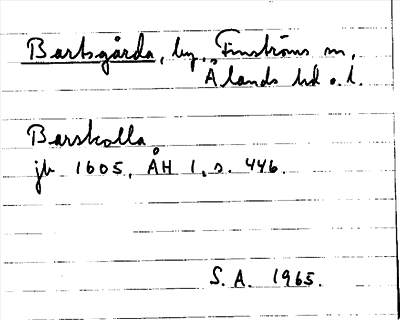 Bartsgårda, by, Finströms sn,
Ålands hd o. l.
Barskalla
jb 1605, ÅH 1, s. 446.
S. A. 1965.